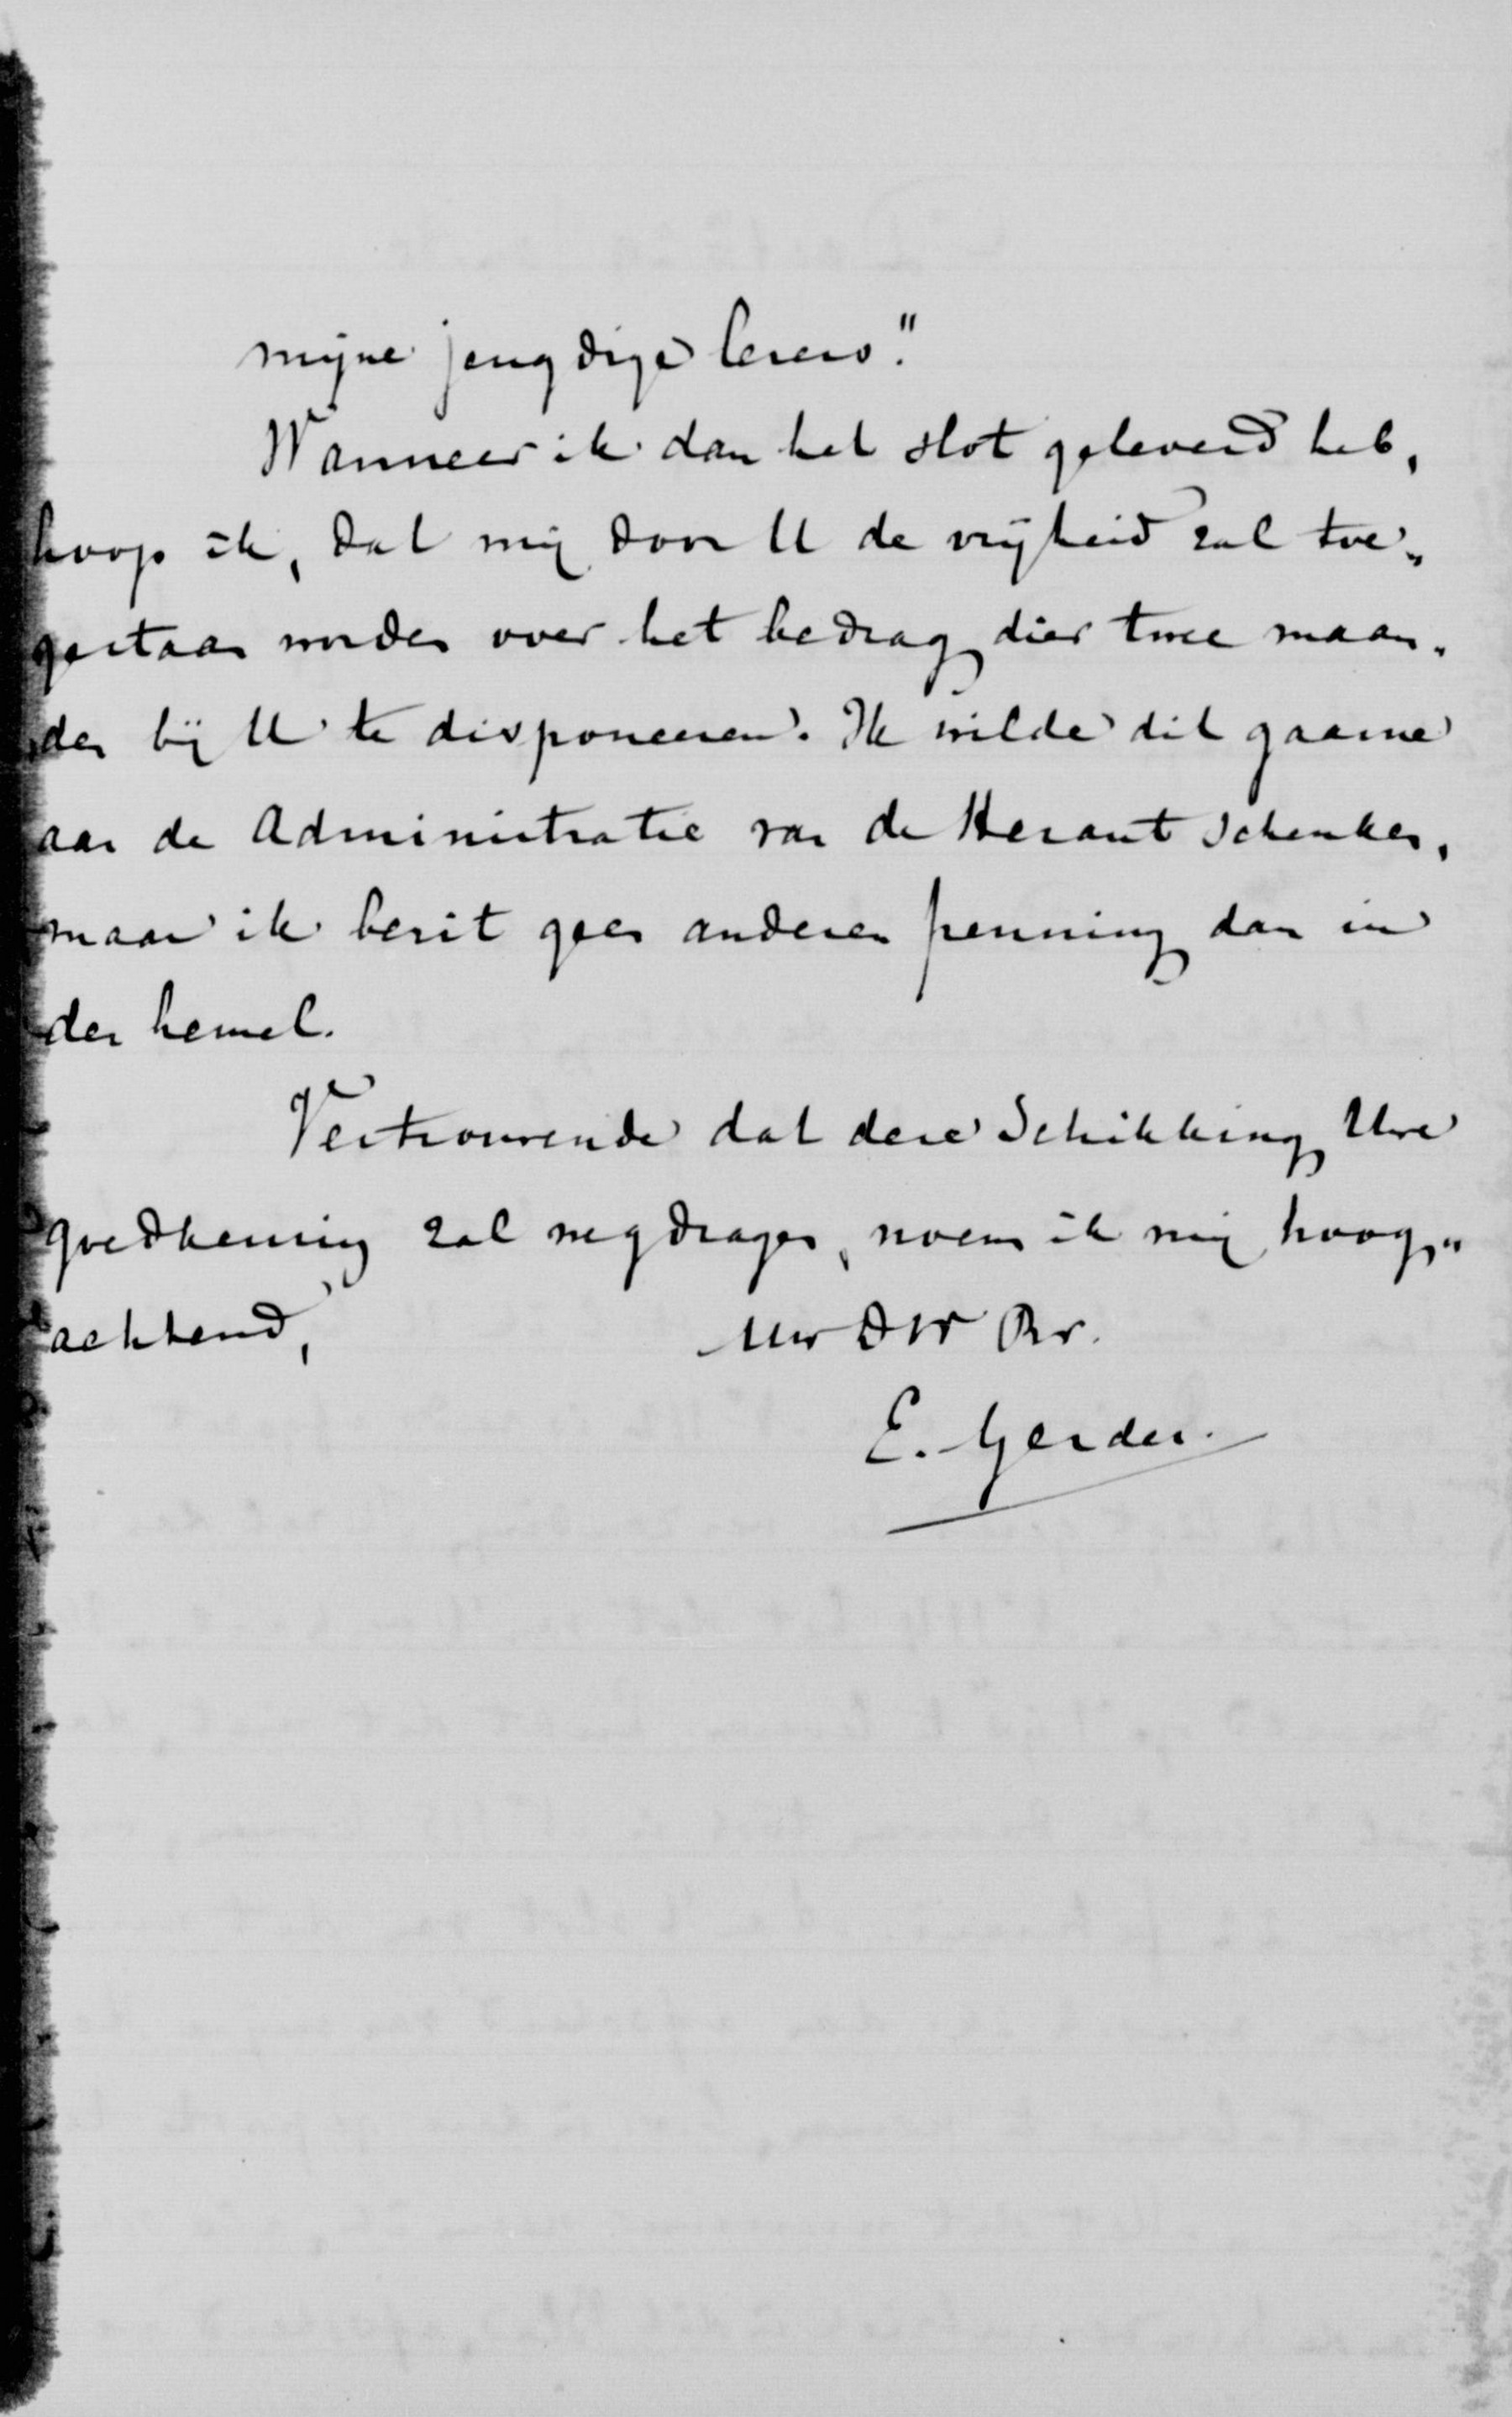 mijne jeugdige lezers."
Wanneer ik dan het slot geleverd heb,
hoop ik, dat mij door U de vrijheid zal toe„
gestaan worden over het bedrag dier twee maan„
den bij U te disponeeren. Ik wilde dit gaarne
aan de Administratie van de Heraut schenken,
maar ik bezit geen anderen penning dan in
den hemel.
Vertrouwende dat deze Schikking Uwe
goedkeuring zal wegdragen, noem ik mij hoog„
achtend,
Uw DW Br.
E. Gerdes.